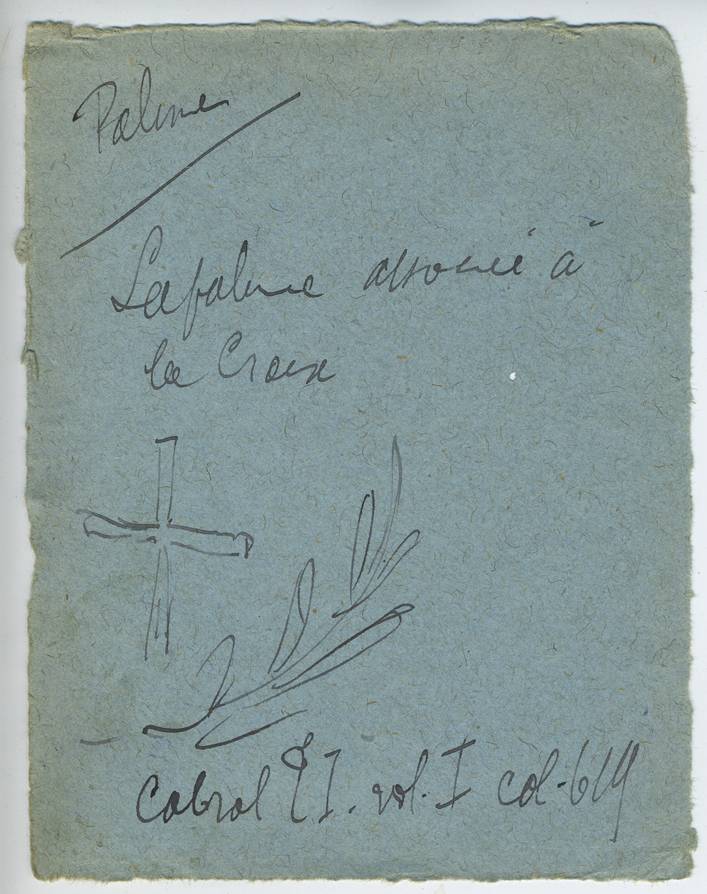 Palme
La palme associée à
la Croix
Cabrol T I. vol. I col. 619